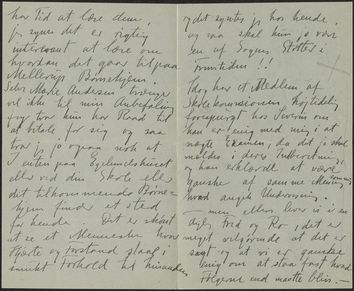 har Tid at lære dem,
jeg synes det er rigtig
interessant at læse om
hvordan det gaar til paa
Mellerups Børnehjem.
Selv Marie Andersen trænger
vel ikke til min Anbefaling
jeg tror hun har Raad til
at betale for sig og saa
tror jeg ogsaa nok at
I enten paa Egelundshuset
eller ved din Skole eller
det tilkommende Børne-
hjem finder et sted
for hende. Det er skønt
at se et Menneske hvor
Hjerte og Forstand staar i
smukt Forhold til hinanden
og det synes jeg hos hende,
og saa skal hun jo være
en af Sognets Støtter i
Fremtiden!!
I dag har et Medlem af
Skolekommissionen højtidelig
forespurgt hos om
han er enig med mig i at
nægte Examen, da det i skal
meldes i deres Indberetning,
og han erklærede at være
ganske af samme Mening
hvad angik Undervisning.
— men ellers lever vi i en
dejlig Fred og Ro, det er
meget velgørende at det er
sagt og at vi er ganske
enig om at staa fast hvad
Følgerne end maatte blive. —